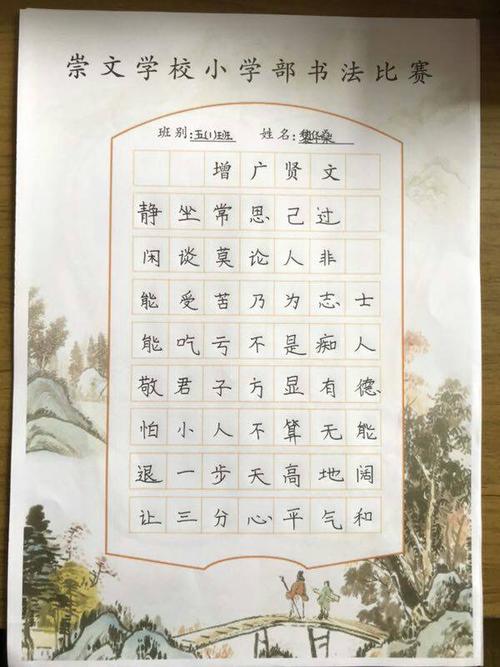 崇文学校小学部书法比赛
班别:五(1)班 姓名:黎华燊
增广贤文
静坐常思己过
闲谈莫论人非
能受苦乃为志士
能吃亏不是痴人
敬君子方显有德
怕小人不算无能
退一步天高地阔
让三分心平气和